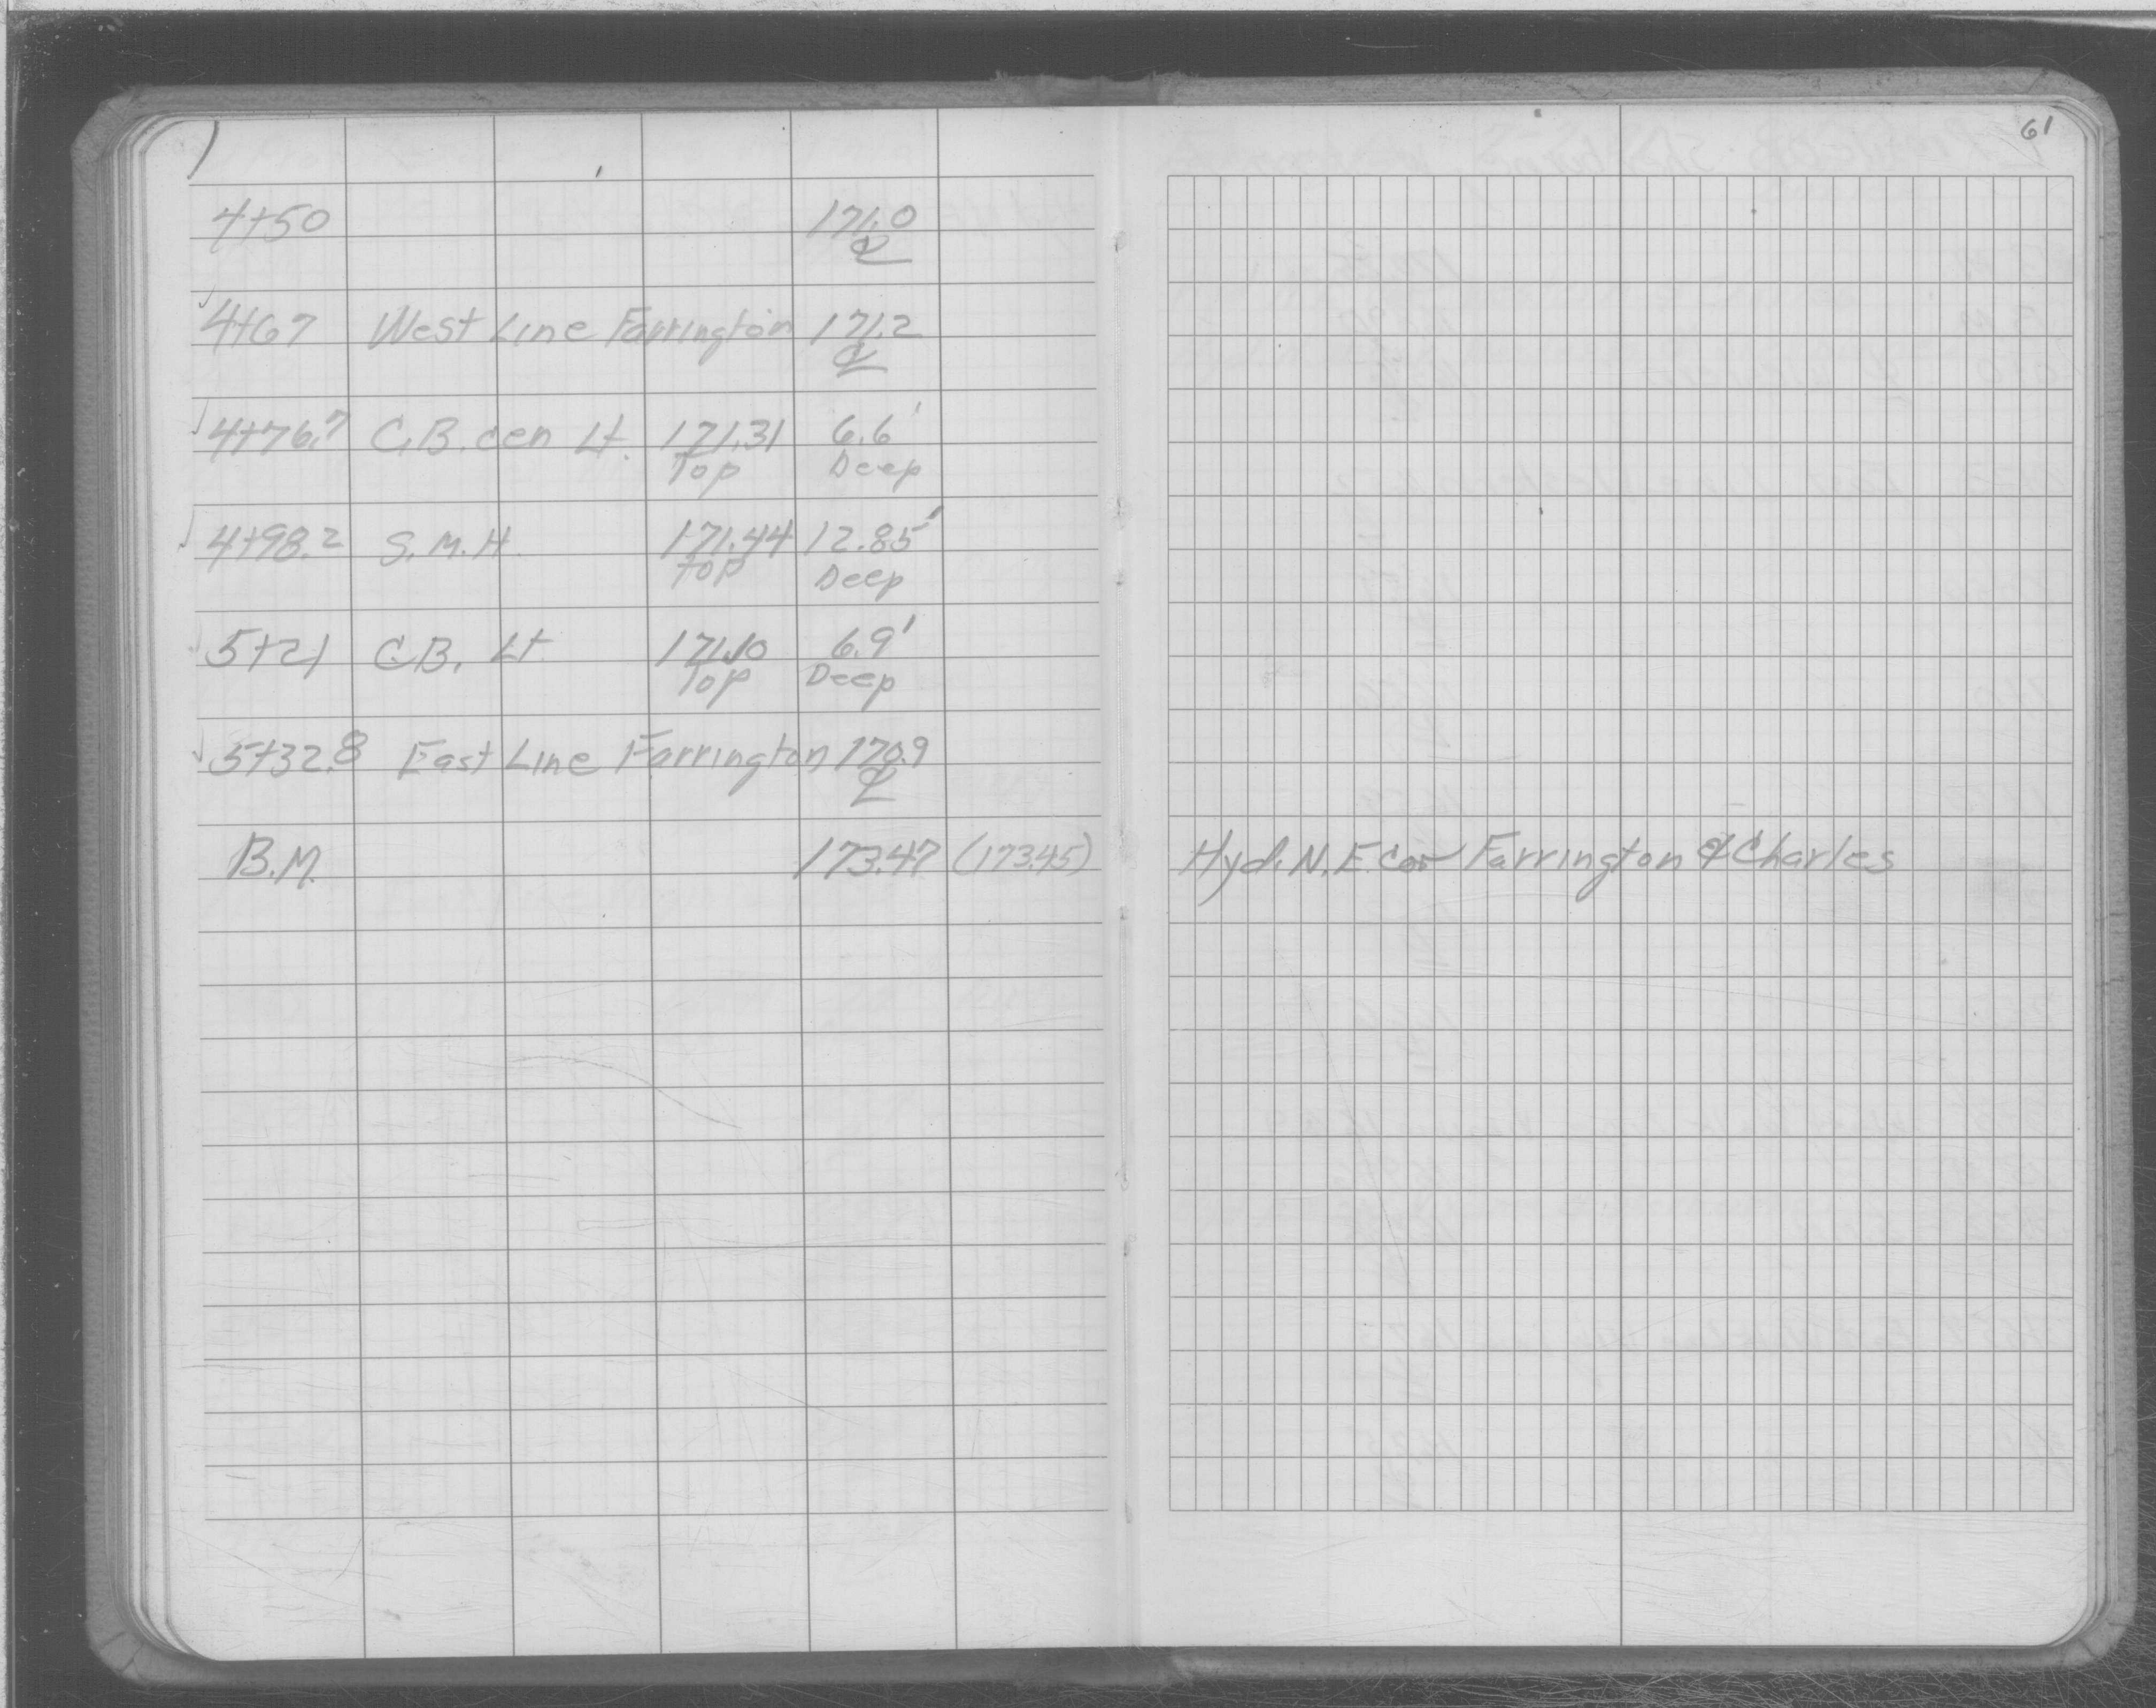 61
4+50 171.0
℄
4+67 West Line Farrington 171.2
℄
4+76.7 C.B. cen Lt. 171.31 6.6'
Top Deep
4+98.2 S.M.H. 171.44 12.85'
top Deep
5+21 C.B. Lt 171.10 6.9'
Top Deep
5+32.8 East Line Farrington 170.9
℄
B.M. 173.47 (173.45) Hyd. N.E. Cor Farrington & Charles